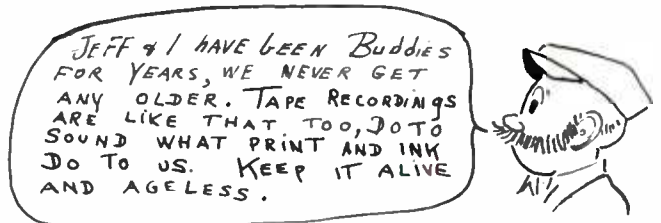 JEFF & I HAVE BEEN BUDDIES
FOR YEARS, WE NEVER GET
ANY OLDER. TAPE RECORDINGS
ARE LIKE THAT TOO, DO TO
SOUND WHAT PRINT AND INK
DO TO US. KEEP IT ALIVE
AND AGELESS.